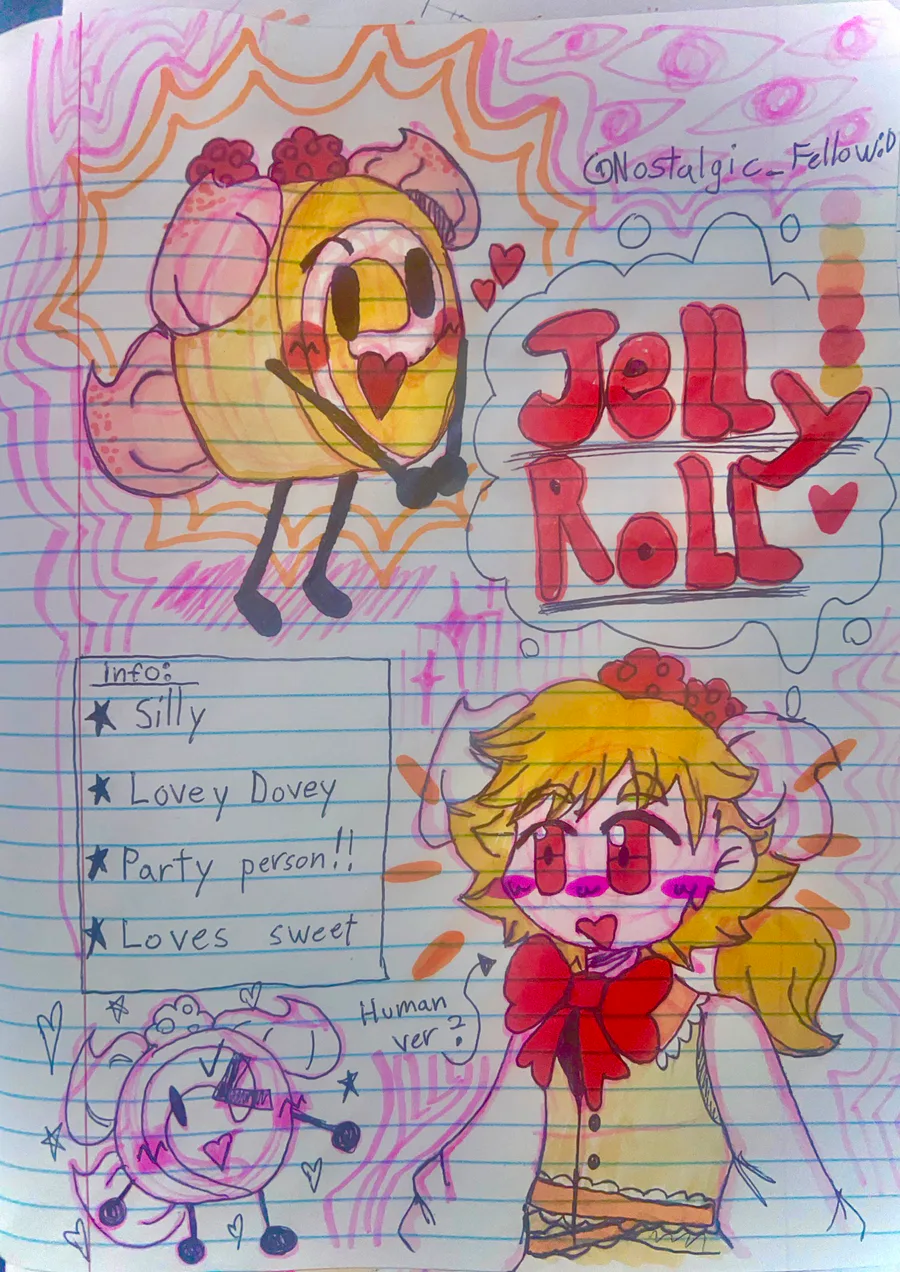 @Nostalgic_Fellow:D
Jelly
Roll
Info:
★ Silly
★ Lovey Dovey
★ Party person!!
★ Loves sweet
Human
ver?